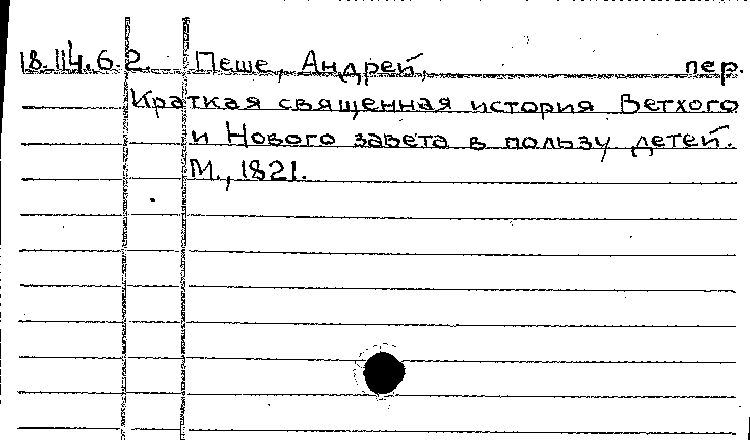 18.114.6.2. Пеше, Андрей, пер.
Краткая священная история Ветхого
и Нового завета в пользу детей.
М., 1821.